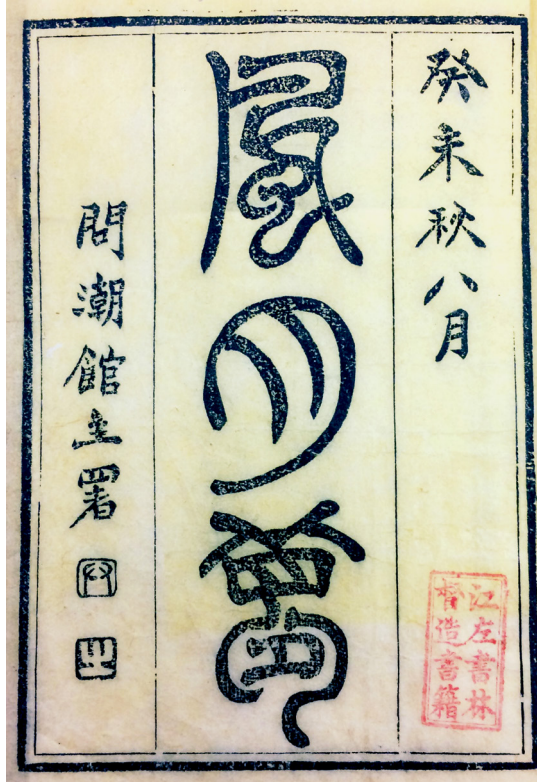 癸未秋八月
風月夢
問潮館主署
江左書林
督造書籍